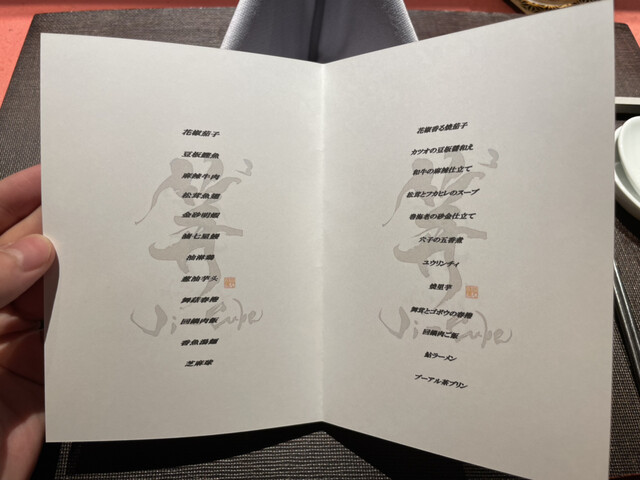 花椒茄子
豆板鰹魚
麻辣牛肉
松茸魚翅
金砂明蝦
油淋鶏
葱油芋头
舞菇春捲
回鍋肉飯
香魚湯麺
芝麻球
花椒香る焼茄子
カツオの豆板醤和え
和牛の麻辣仕立て
松茸とフカヒレのスープ
巻海老の砂金仕立て
穴子の五香煮
ユウリンチィ
焼里芋
舞茸とゴボウの春捲
回鍋肉ご飯
鮎ラーメン
プーアル茶プリン